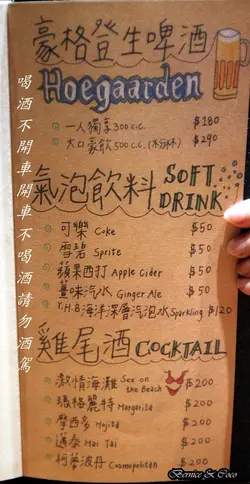 豪格登生啤酒
Hoegaarden
一人獨享300c.c. $180
大口豪飲500c.c.(不分杯) $290
氣泡飲料 SOFT DRINK
可樂 Coke $50
雪碧 Sprite $50
蘋果西打 Apple Cider $50
薑味汽水 Ginger Ale $50
Y.H.B海洋深層汽泡水Sparkling $120
雞尾酒 COCKTAIL
激情海灘 Sex on the Beach $200
瑪格麗特 Margarita $200
摩西多 Mojito $200
邁泰 Mai Tai $200
柯夢波丹 Cosmopolitan $200
喝酒不開車開車不喝酒請勿酒駕
Bernice & Coco